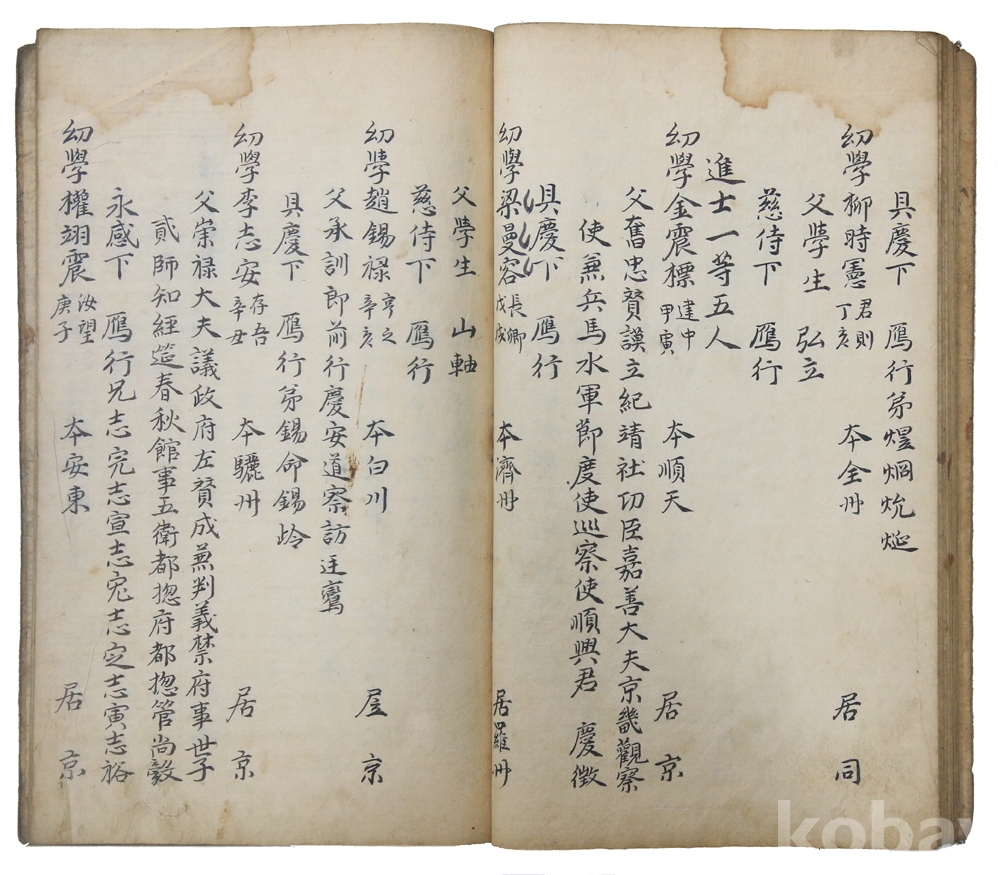 具慶下 鴈行弟煜烱炾烻
幼學柳時憲 君則 丁亥 本全州 居同
父學生 弘立
慈侍下 鴈行
進士一等五人
幼學金震標 建中 甲寅 本順天 居京
父奮忠贊謨立紀靖社功臣嘉善大夫京畿觀察
使兼兵馬水軍節度使巡察使順興君 慶徵
具慶下 鴈行
幼學梁曼容 長卿 戊戌 本濟州 居羅州
父學生 山軸
慈侍下 鴈行
幼學趙錫祿 亨之 辛亥 本白川 居京
父承訓郎前行慶安道察訪廷鸞
具慶下 鴈行弟錫命錫岭
幼學李志安 存吾 辛丑 本驪州 居京
父崇祿大夫議政府左贊成兼判義禁府事世子
貳師知經筵春秋館事五衛都摠府都摠管尚毅
永感下 鴈行兄志完志宣志宖志定志寅志裕
幼學權翊震 汝望 庚子 本安東 居京
kobay